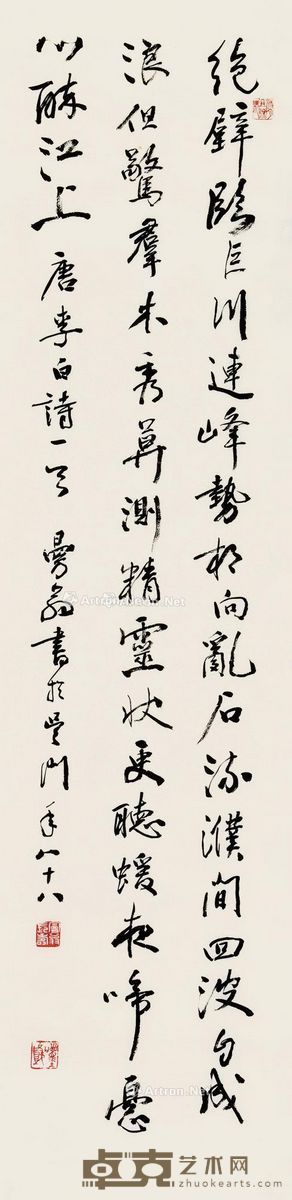 絶壁臨巨川連峰勢相向亂石流濮間回波自成
浪但驚羣木秀莫測精靈狀更聽猨夜啼憂
心醉江上 唐李白詩一首 曼翁書於吳門年八十八
Artron.Net
卓克艺术网
zhuokearts.com